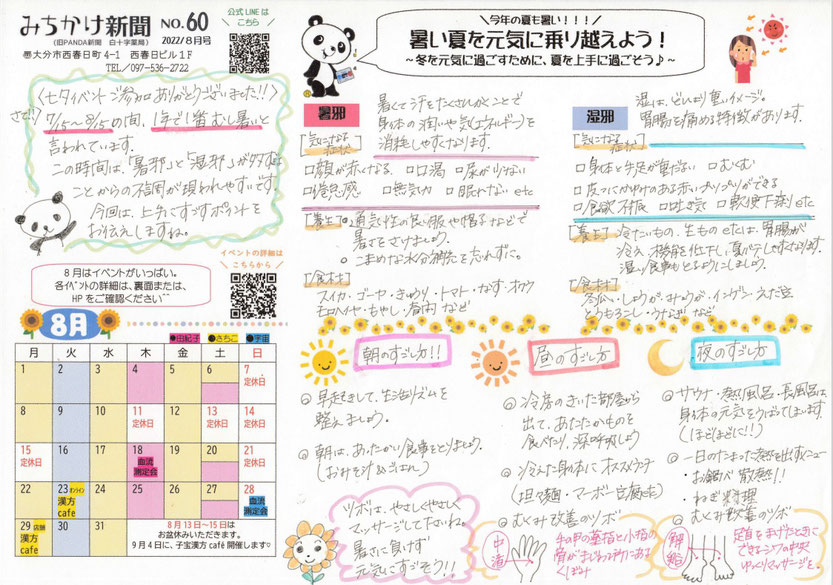 みちかけ新聞 NO.60
(旧PANDA新聞 白十字薬局) 2022/8月号
大分市西春日町4-1 西春日ビル1F
TEL/097-536-2722
公式LINEは
こちら
＼今年の夏も暑い！！！／
暑い夏を元気に乗り越えよう！
～冬を元気に過ごすために、夏を上手に過ごそう♪～
〈七夕イベントご参加ありがとうございました!!〉
さて!! 7/5～8/5の間、1年で1番むし暑いと
言われています。
この時間は、「暑邪」と「湿邪」が
ことからの不調が現われやすいです。
今回は、上手にすごすポイントを
お伝えしますね。
イベントの詳細は
こちらから
8月はイベントがいっぱい。
各イベントの詳細は、裏面または、
HPをご確認ください
8月
●由紀子 ●さちこ ●宇宙
月 火 水 木 金 土 日
1 2 3 4 5 6 7
定休日
8 9 10 11 12 13 14
定休日 定休日 定休日
15 16 17 18 19 20 21
定休日 血流測定会 定休日
22 23 オンライン 24 25 26 27 28
漢方cafe 血流測定会
29 店舗 30 31
漢方cafe
8月13日～15日は
お盆休みいただきます。
9月4日に、子宝漢方café開催します♡
暑邪
暑くて汗をたくさんかくことで
身体の潤いや気(エネルギー)を
消耗しやすくなります。
[気になる症状]
□顔が赤くなる □口渇 □尿が少ない
□倦怠感 □無気力 □眠れない etc
[養生] ○通気性の良い服や帽子などで
暑さをさけましょう。
○こまめな水分補給を忘れずに。
[食材]
スイカ・ゴーヤ・きゅうり・トマト・なす・オクラ
モロヘイヤ・もやし・など
湿邪
湿は、どんより重いイメージ。
胃腸を痛める特徴があります。
[気になる症状]
□身体や手足が重だるい □むくむ
□皮フにかゆみのある赤いができる
□食欲不振 □吐き気 □軟便下痢 etc
[養生] ○冷たいもの、生もの etcは、胃腸が
冷え、機能を低下し、夏バテしやすくなります。
温い食事もとるようにしましょう。
[食材]
冬瓜・しょうが・みょうが・インゲン・えだ豆
とうもろこし・うなぎ など
朝のすごし方!!
◎早起きをして、生活リズムを
整えましょう。
◎朝は、あたたかい食事をとりましょう。
(おみそ汁&ごはん)
ツボは、やさしくやさしく
マッサージして下さいね。
暑さに負けず
元気にすごそう!!
昼のすごし方
◎冷房のきいた部屋から
出て、あたたかものを
食べたり、深呼吸しよう
◎冷えた身体にオススメランチ
(坦々麺・マーボー豆腐 etc)
◎むくみ改善のツボ
中渚
手の甲の薬指と小指の
骨がまじわる所にある
くぼみ
夜のすごし方
◎サウナ・熱風呂・長風呂は
身体の元気をうばってしまいます。
(ほどほどに!!)
◎一日のたまった熱を出すメニュー
・お鍋で 発熱!!
・ねぎ料理
◎むくみ改善のツボ
解谿
足首をまげたときに
できるシワの中央
ゆっくりマッサージを。